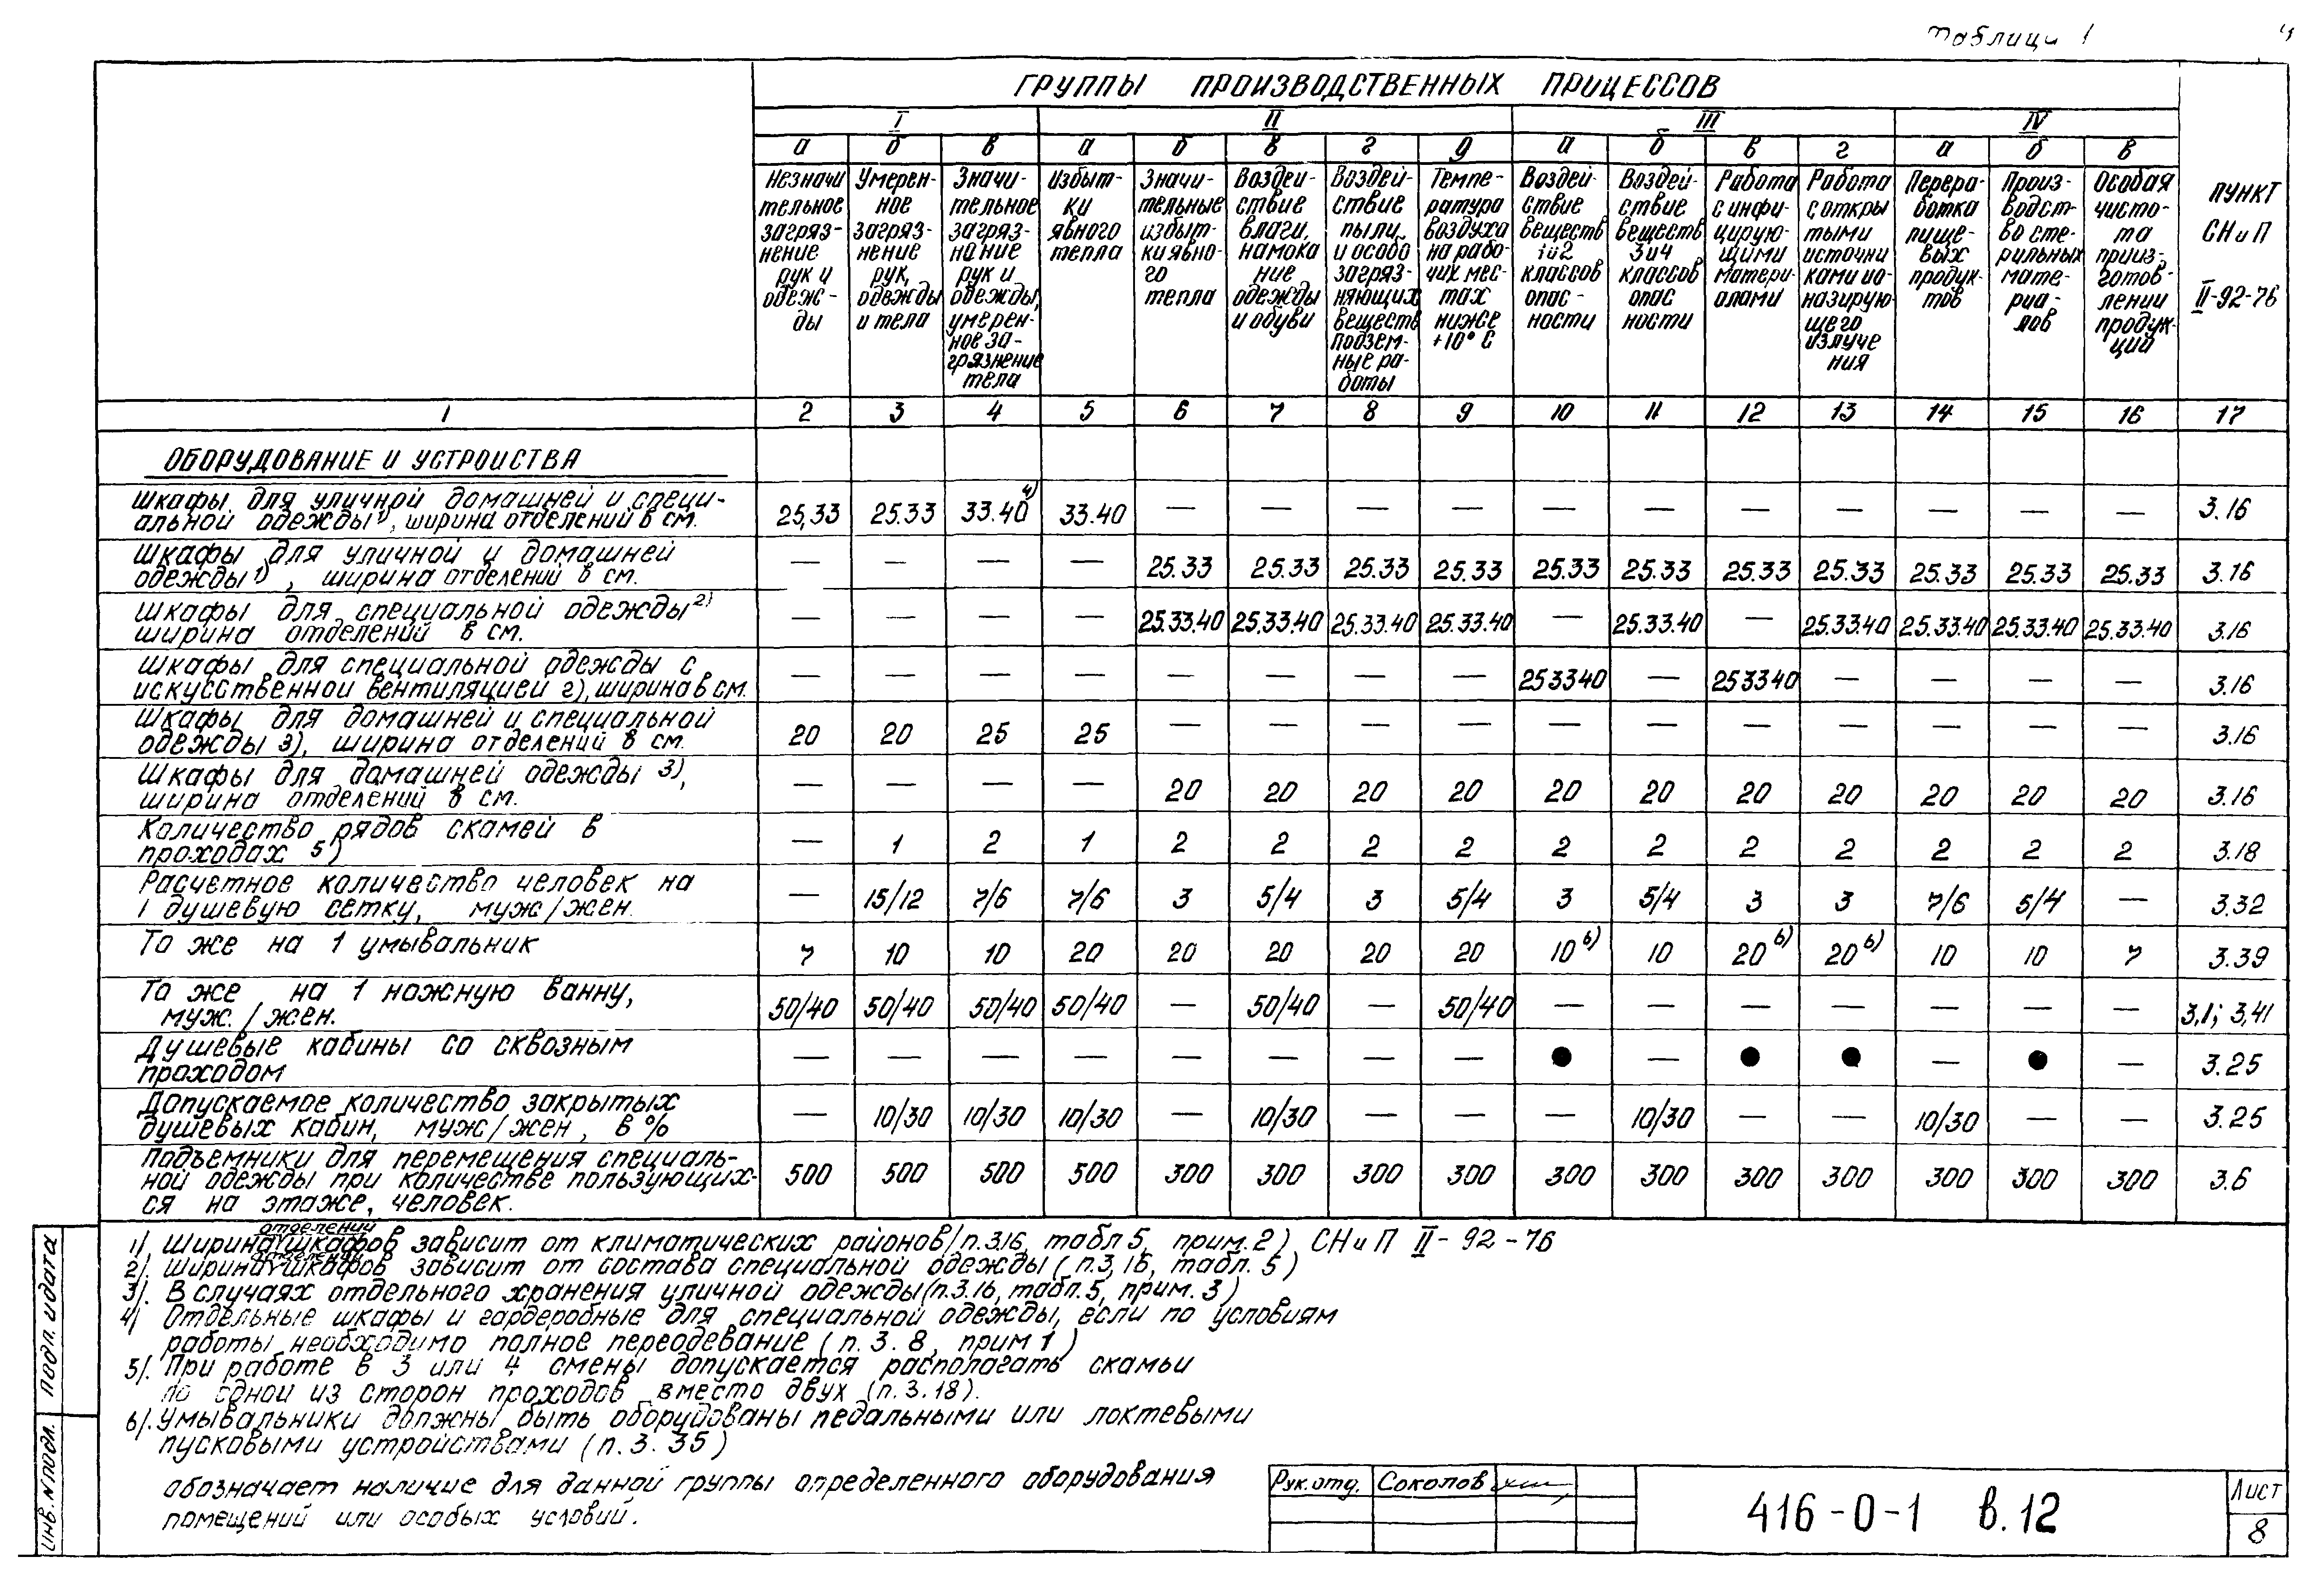 Таблица 1
4
ГРУППЫ ПРОИЗВОДСТВЕННЫХ ПРОЦЕССОВ
I II III IV
а б в а б в г д а б в г а б в
Незначительное загрязнение рук и одежды
Умеренное загрязнение рук, одежды и тела
Значительное загрязнение рук и одежды, умеренное загрязнение тела
Избытки явного тепла
Значительные избытки явного тепла
Воздействие влаги, намокание одежды и обуви
Воздействие пыли и особо загрязняющих веществ подземные работы
Температура воздуха на рабочих местах ниже +10° С
Воздействие веществ 1 и 2 классов опасности
Воздействие веществ 3 и 4 классов опасности
Работа с инфицирующими материалами
Работа с открытыми источниками ионазирующего излучения
Переработка пищевых продуктов
Производство стерильных материалов
Особая чистота при изготовлении продукции
ПУНКТ СНиП II-92-76
1 2 3 4 5 6 7 8 9 10 11 12 13 14 15 16 17
ОБОРУДОВАНИЕ И УСТРОЙСТВА
Шкафы для уличной домашней и специальной одежды 1), ширина отделений в см. 25,33 25.33 33.40 4) 33.40 — — — — — — — — — — — 3.16
Шкафы для уличной и домашней одежды 1), ширина отделений в см. — — — — 25.33 25.33 25.33 25.33 25.33 25.33 25.33 25.33 25.33 25.33 25.33 3.16
Шкафы для специальной одежды 2) ширина отделений в см. — — — — 25.33.40 25.33.40 25.33.40 25.33.40 — 25.33.40 — 25.33.40 25.33.40 25.33.40 25.33.40 3.16
Шкафы для специальной одежды с искусственной вентиляцией 2), ширина в см. — — — — — — — — 253340 — 253340 — — — — 3.16
Шкафы для домашней и специальной одежды 3), ширина отделений в см. 20 20 25 25 — — — — — — — — — — — 3.16
Шкафы для домашней одежды 3), ширина отделений в см. — — — — 20 20 20 20 20 20 20 20 20 20 20 3.16
Количество рядов скамей в проходах 5) — 1 2 1 2 2 2 2 2 2 2 2 2 2 2 3.18
Расчетное количество человек на 1 душевую сетку, муж/жен. — 15/12 7/6 7/6 3 5/4 3 5/4 3 5/4 3 3 7/6 5/4 — 3.32
То же на 1 умывальник 7 10 10 20 20 20 20 20 10 6) 10 20 6) 20 6) 10 10 7 3.39
То же на 1 ножную ванну, муж. / жен. 50/40 50/40 50/40 50/40 — 50/40 — 50/40 — — — — — — — 3,1; 3,41
Душевые кабины со сквозным проходом — — — — — — — — ● — ● ● — ● — 3.25
Допускаемое количество закрытых душевых кабин, муж/жен, в % — 10/30 10/30 10/30 — 10/30 — — — 10/30 — — 10/30 — — 3.25
Подъемники для перемещения специальной одежды при количестве пользующихся на этаже, человек. 500 500 500 500 300 300 300 300 300 300 300 300 300 300 300 3.6
отделений
1). Ширина шкафов зависит от климатических районов (п.3.16, табл 5, прим. 2) СНиП II-92-76
отделений
2). Ширина шкафов зависит от состава специальной одежды (п.3,16, табл. 5)
3). В случаях отдельного хранения уличной одежды (п.3.16, табл.5, прим. 3)
4) Отдельные шкафы и гардеробные для специальной одежды, если по условиям
работы необходимо полное переодевание (п. 3. 8, прим 1)
5). При работе в 3 или 4 смены допускается располагать скамьи
по одной из сторон проходов вместо двух (п. 3. 18).
6). Умывальники должны быть оборудованы педальными или локтевыми
пусковыми устройствами (п. 3. 35)
обозначает наличие для данной группы определенного оборудования
помещений или особых условий.
Рук. отд. Соколов
416-0-1 в. 12
Лист
8
подп. и дата
инв. N подл.